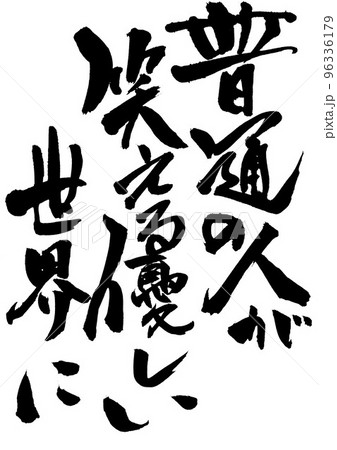 普通の人が
笑える優しい
世界に
pixta.jp - 96336179